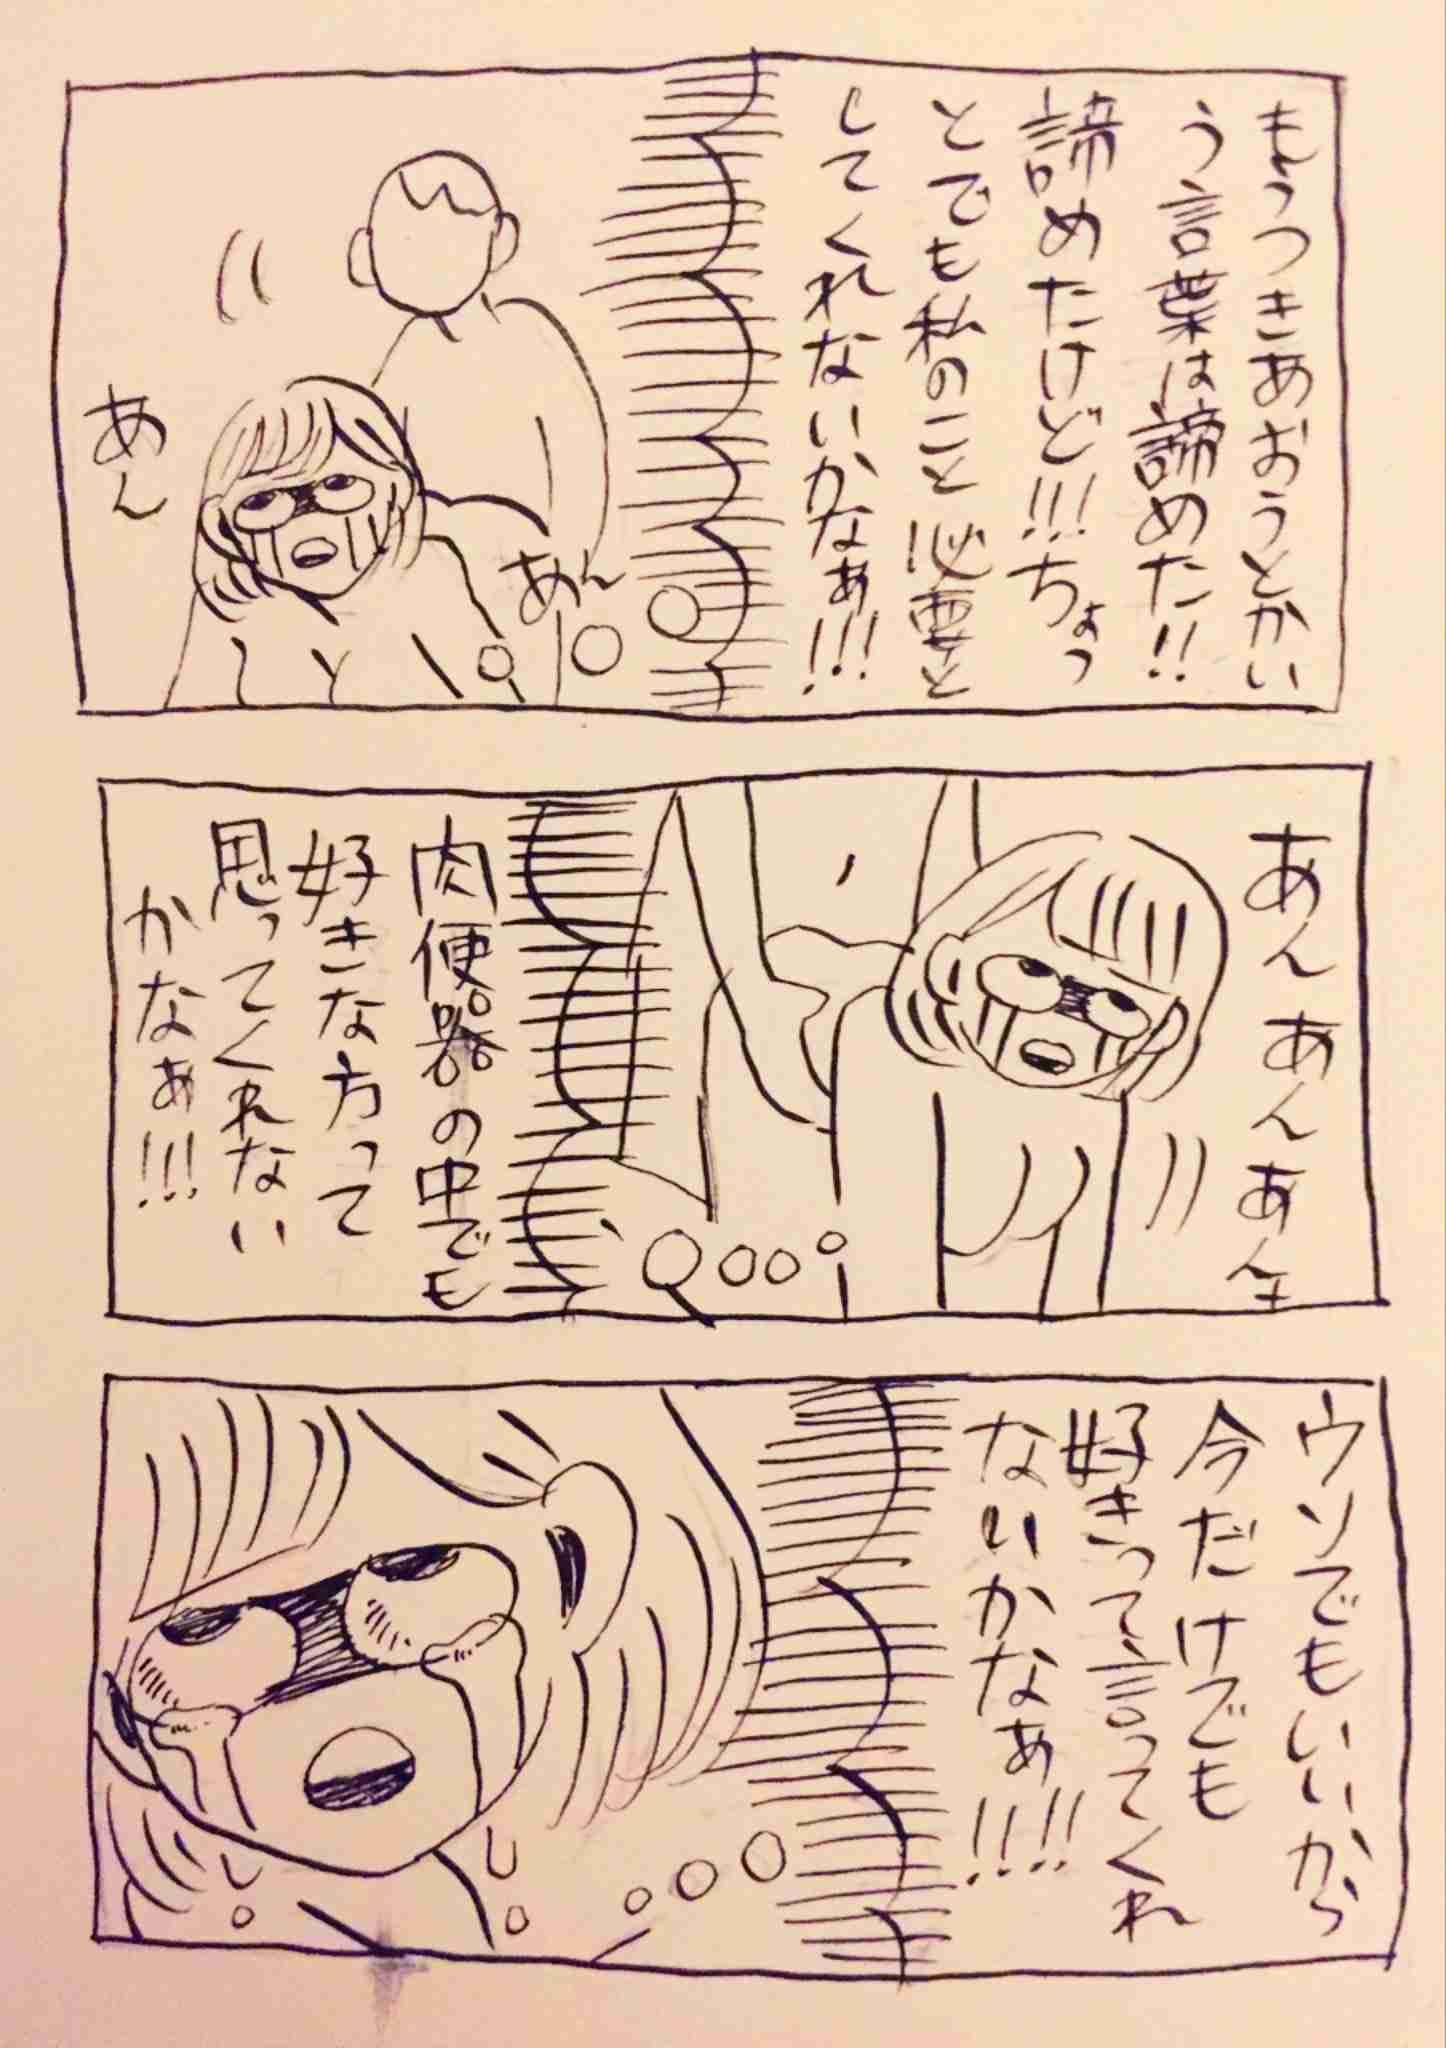 もうつきあおうとかい
う言葉は諦めた!!
諦めたけど!!!ちょっ
とでも私のこと必要と
してくれないかなぁ!!!
あん
あん
あんあんあん
肉便器の中でも
好きな方って
思ってくれない
かなぁ!!!
ウソでもいいから
今だけでも
好きって言ってくれ
ないかなぁ!!!!